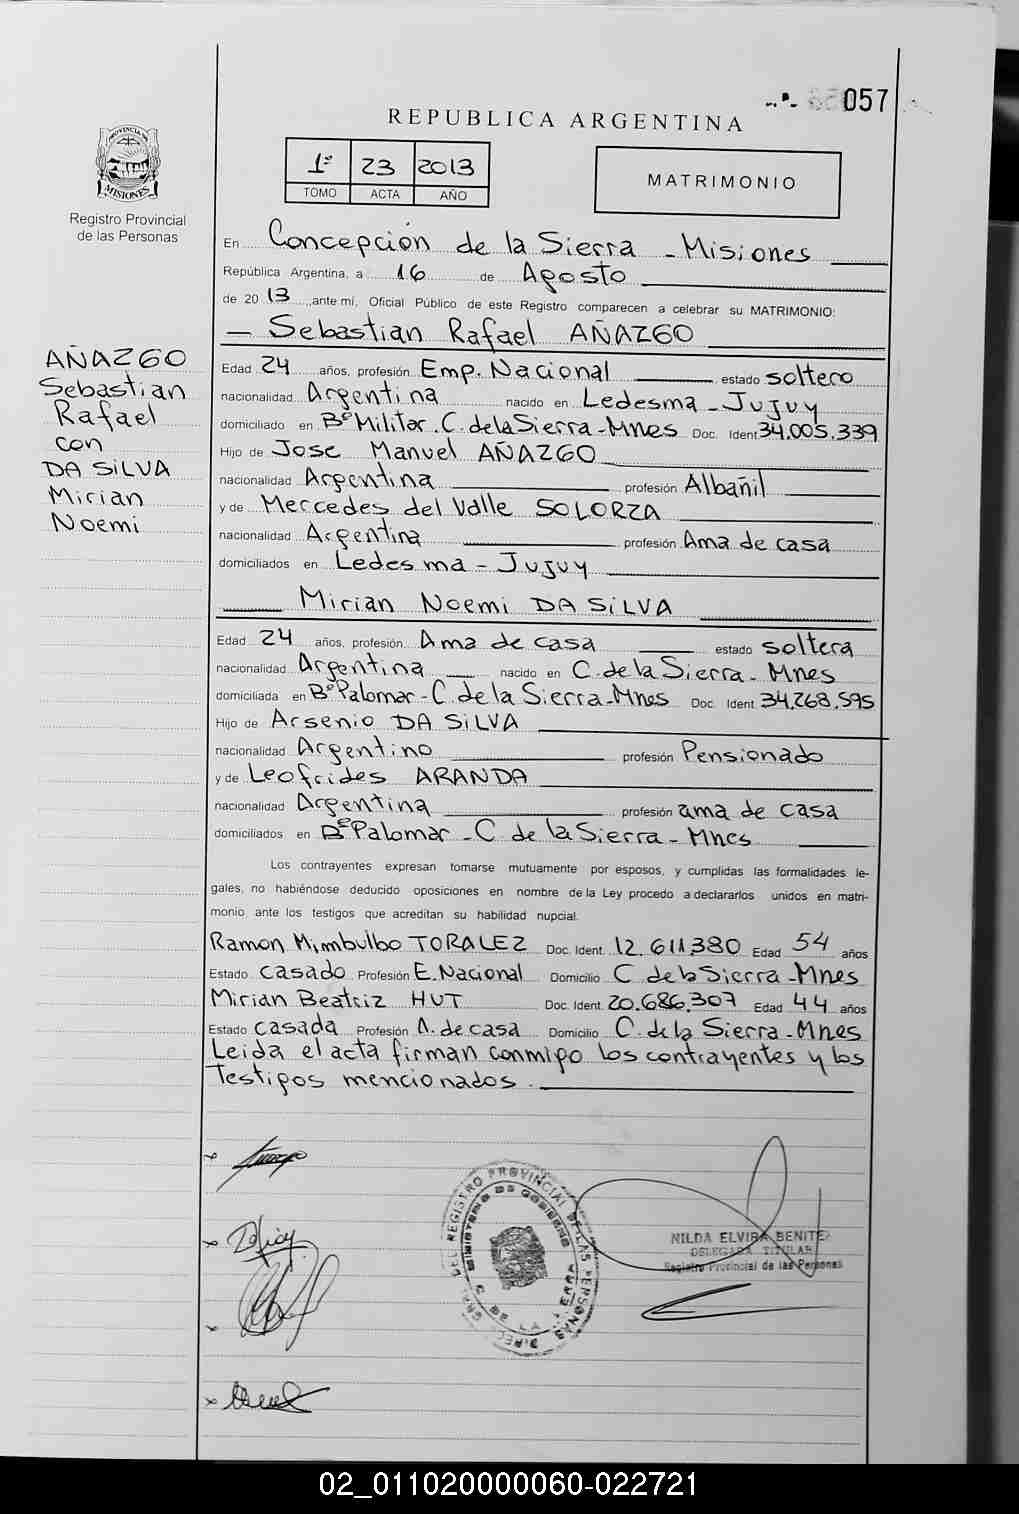 057
REPUBLICA ARGENTINA
PROVINCIA DE MISIONES
Registro Provincial
de las Personas
1º 23 2013
TOMO ACTA AÑO
MATRIMONIO
En Concepción de la Sierra - Misiones
República Argentina, a 16 de Agosto
de 2013, ante mí, Oficial Público de este Registro comparecen a celebrar su MATRIMONIO:
— Sebastian Rafael AÑAZGO
AÑAZGO
Sebastian
Rafael
con
DA SiLVA
Mirian
Noemi
Edad 24 años, profesión Emp. Nacional estado soltero
nacionalidad Argentina nacido en Ledesma - Jujuy
domiciliado en Bº Militar. C. de la Sierra - Mnes Doc. Ident 34.005.339
Hijo de Jose Manuel AÑAZGO
nacionalidad Argentina profesión Albañil
y de Mercedes del Valle SOLORZA
nacionalidad Argentina profesión Ama de casa
domiciliados en Ledesma - Jujuy
Mirian Noemi DA SiLVA
Edad 24 años, profesión Ama de casa estado soltera
nacionalidad Argentina nacido en C. de la Sierra - Mnes
domiciliada en Bº Palomar - C. de la Sierra - Mnes Doc. Ident 34.268.595
Hijo de Arsenio DA SiLVA
nacionalidad Argentino profesión Pensionado
y de Leofrides ARANDA
nacionalidad Argentina profesión ama de casa
domiciliados en Bº Palomar - C. de la Sierra - Mnes
Los contrayentes expresan tomarse mutuamente por esposos, y cumplidas las formalidades le-
gales, no habiéndose deducido oposiciones en nombre de la Ley procedo a declararlos unidos en matri-
monio ante los testigos que acreditan su habilidad nupcial.
Ramon Mimbulbo TORALEZ Doc. Ident. 12.611.380 Edad 54 años
Estado casado Profesión E. Nacional Domicilio C. de la Sierra - Mnes
Mirian Beatriz HUT Doc. Ident. 20.686.307 Edad 44 años
Estado casada Profesión A. de casa Domicilio C. de la Sierra - Mnes
Leida el acta firman conmigo los contrayentes y los
Testigos mencionados.
DIREC. GRAL. DEL REGISTRO PROVINCIAL DE LAS PERSONAS
MINISTERIO DE GOBIERNO
NILDA ELVIRA BENITEZ
DELEGADA TITULAR
Registro Provincial de las Personas
02_011020000060-022721